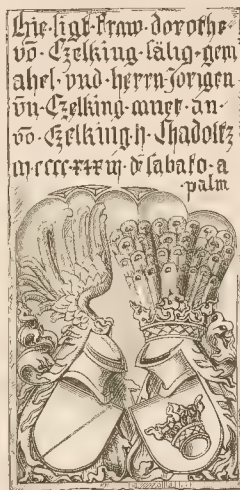 hie · ligt · fraw · dorothe ·
võ · Czelking · sälig · gem
ahel · vnd · herrn · Jorigen
võ · Czelking · mueter · an ·
vo · Czelking · h · Chadoltz
m · cccc · xxx iii · d' · sabato · a
· palm